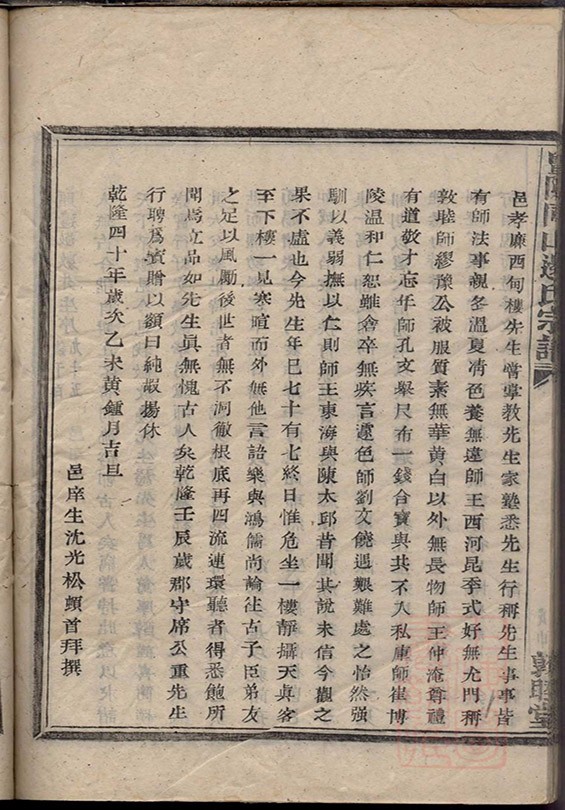 邑孝廉西甸樓先生嘗掌教先生家塾悉先生行稱先生事事皆
有師法事親冬溫夏凊色養無違師王西河昆季式好無尤門稱
敦睦師繆豫公被服質素無華黃白以外無長物師王仲淹尊禮
有道敬才忘年師孔文舉尺布一錢合寶與共不入私庫師崔博
陵溫和仁恕雖倉卒無疾言遽色師劉文饒遇艱難處之怡然強
馴以義弱撫以仁則師王東海與陳太邱昔聞其說未信今觀之
果不虛也今先生年巳七十有七終日惟危坐一樓靜攝天眞客
至下樓一見寒暄而外無他言語樂與鴻儒尚論往古子臣弟友
之足以風勵後世者無不洞徹根底再四流連環聽者得悉飽所
聞爲立品如先生眞無愧古人矣乾隆壬辰歲郡守席公重先生
行聘爲賓贈以額曰純嘏揚休
乾隆四十年歲次乙未黃鍾月吉旦
邑庠生沈光松頓首拜撰
氏宗譜
敦睦堂